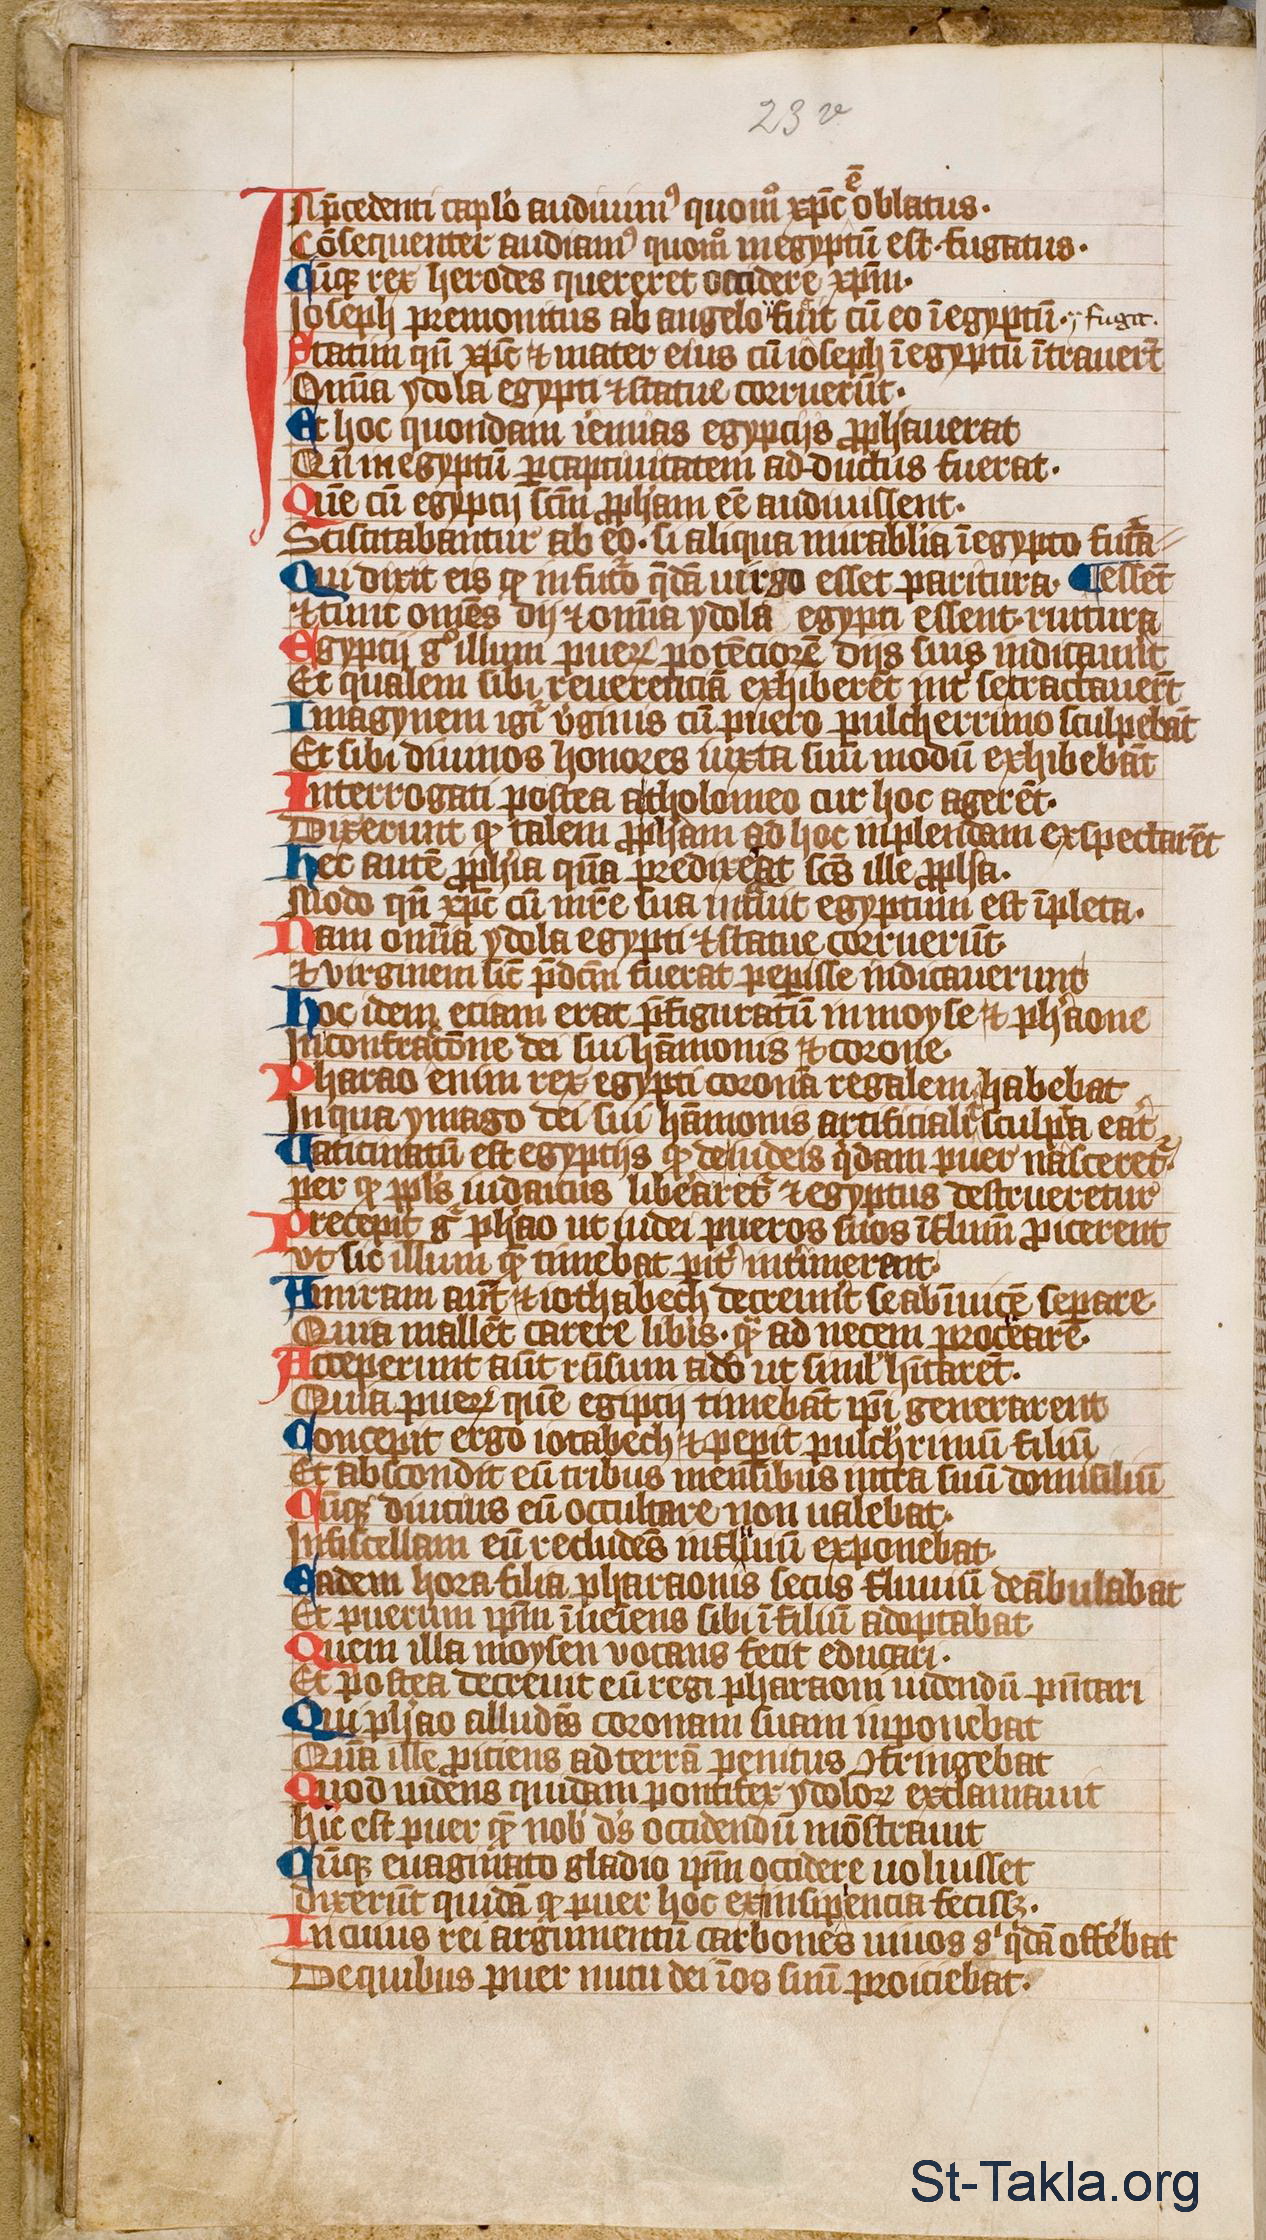 23 v
In p̄cedenti caplo audiuim⁹ quom° xp̄c ē oblatus·
Cōsequenter audiam⁹ quom° in egyptū est fugatus·
Cūqꝫ rex herodes quereret occidere xp̄m·
Ioseph premonitus ab angelo fuit cū eo ī egyptū· fugit·
Statim qn̄ xp̄c ⁊ mater eius cū ioseph ī egyptū ītrauerūt
Omīa ydola egypti ⁊ statue corruerūt·
Et hoc quondam ieremias egyptijs ꝓph̄auerat
Qn̄ in egyptū ꝑ captiuitatem adductus fuerat·
Quē cū egyptij scm̄ ꝓph̄am eē audiuissent·
Scistitabantur ab eo· si aliqua mirabl̄ia ī egypto futa
Qui dixit eis ꝙ in futo qdā uirgo esset paritura· ¶ essēt
⁊ tunc omēs dij ⁊ omīa ydola egypti essent ruitura
Egyptij g° illum pueꝝ potēciorē dijs suis indicauūt
Et qualem sibi reuerenciā exhiberēt int' se tractauerūt
Imagynem igi v̄ginis cū puero pulcherrimo sculpebāt
Et sibi diuinos honores iuxta suū modū exhibebāt
Interrogati postea a tholomeo cur hoc agerēt·
Dixerunt ꝙ talem ꝓph̄iam adhoc inplendam exspectarēt
Hec autē ꝓph̄ia quā predixeat scs̄ ille ꝓph̄a·
Modo qn̄ xp̄c cū mr̄e sua intuit egyptum est īpleta·
Nam omīa ydola egypti ⁊ statue corruerūt
⁊ virginem sic p̄dcm̄ fuerat peꝑisse indicauerunt
Hoc idem eciam erat p̄figuratū in moyse ⁊ ph̄aone
In confractōne dei sui hāmonis ⁊ corone·
Pharao enim rex egypti coronā regalem habebat
In qua ymago dei sui hāmonis artificialit' sculpta eat
Vaticinatū est egyptijs ꝙ de iudeis qdam puer nasceret'
per quē ppl̄s iudaicus libēaret' ⁊ egyptus destrueretur
Precepit g° ph̄ao ut iudei pueros suos ī fluuiū ꝓicerent
vt sic illum quē timebat pit' interimerent·
Amram aūt ⁊ iothabech decreuīt se abīuicē separe
Quia mallēt carere libis· qꝫ ad necem procreare·
Acceperunt aūt rn̄sum a dō ut simul h̄itarēt·
Quia pueꝝ quē egiptij timebāt ipī generarent
Concepit ergo iotabech ⁊ peꝑit pulch'rimū filiū
Et abscondit eū tribus mensibus intra suū domiciliū
Cūqꝫ diucius eū occultare non ualebat·
In fiscellam eū recludēs in fluuiū exponebat·
Eadem hora filia pharaonis secus fluuiū deābulabat
Et puerum ipm̄ īueiens sibi ī filiū adoptabat
Quem illa moysen vocans fecit educari·
Et postea decreuit eū regi pharaoni uidendū pn̄tari
Qui ph̄ao alludēs coronam suam inponebat
Quā ille ꝓiciens ad terrā penitus ꝯfringebat
Quod uidens quidam pontifex ydoloꝝ exclamauit
hic est puer quē nob' ds̄ occidendū mōstrauit
Cūqꝫ euaginato gladio ipm̄ occidere uoluisset
dixerūt quidā ꝙ puer hoc ex insipiencia fecissꝫ·
In cuius rei argumentū carbones uiuos s' qdā offēbat
De quibus puer nutu dei ī os suū proiciebat·
St-Takla.org